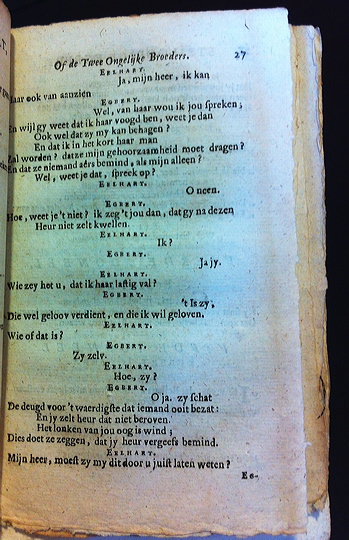 Of de Twee Ongelijke Broeders. 27
EELHART.
Ja, mijn heer, ik kan
haar ook van aanzien
EGBERT.
Wel, van haar wou ik jou spreken;
En wijl gy weet dat ik haar voogd ben, weet je dan
Ook wel dat zy my kan behagen?
En dat ik in het kort haar man
Zal worden? datze mijn gehoorzaamheid moet dragen?
En dat ze niemand aêrs bemind, als mijn alleen?
Wel, weet je dat, spreek op?
EELHART.
O neen.
EGBERT.
Hoe, weet je 't niet? ik zeg 't jou dan, dat gy na dezen
Heur niet zelt kwellen.
EELHART.
Ik?
EGBERT.
Ja jy.
EELHART.
Wie zey het u, dat ik haar lastig val?
EGBERT.
't Is zy,
Die wel geloov verdient, en die ik wil geloven.
EELHART.
Wie of dat is?
EGBERT.
Zy zelv.
EELHART.
Hoe, zy?
EGBERT.
O ja. zy schat
De deugd voor 't waerdigste dat iemand ooit bezat:
En jy zelt heur dat niet beroven.
Het lonken van jou oog is wind;
Dies doet ze zeggen, dat jy heur vergeefs bemind.
EELHART.
Mijn heer, moest zy my dit door u juist laten weten?
EG-